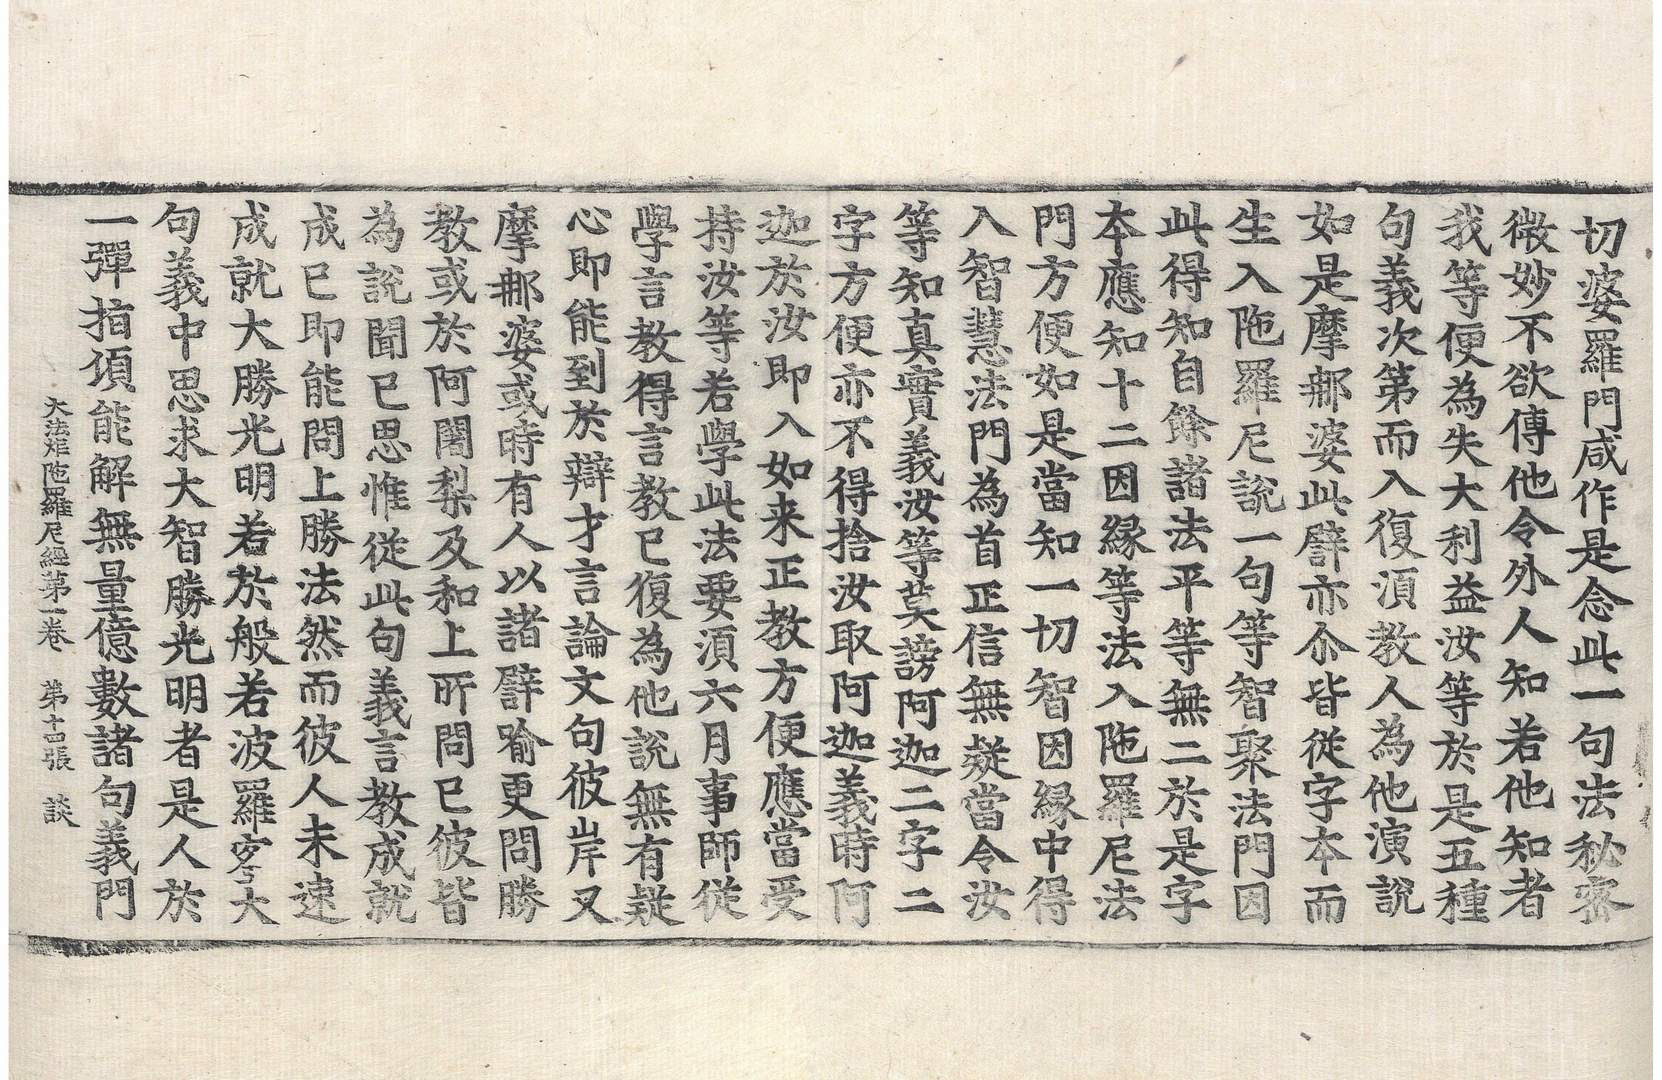 切婆羅門咸作是念此一句法秘密
微妙不欲傳他令外人知若他知者
我等便為失大利益汝等於是五種
句義次第而入復須教人為他演說
如是摩那婆此譬亦尒皆從字本而
生入陁羅尼說一句等智聚法門因
此得知自餘諸法平等無二於是字
本應知十二因緣等法入陁羅尼法
門方便如是當知一切智因緣中得
入智慧法門為首正信無疑當令汝
等知真實義汝等莫謗阿迦二字二
字方便亦不得捨汝取阿迦義時阿
迦於汝即入如来正教方便應當受
持汝等若學此法要須六月事師從
學言教得言教已復為他說無有疑
心即能到於辯才言論文句彼岸又
摩那婆或時有人以諸譬喻更問勝
教或於阿闍梨及和上所問已彼皆
為說聞已思惟從此句義言教成就
成已即能問上勝法然而彼人未速
成就大勝光明若於般若波羅蜜大
句義中思求大智勝光明者是人於
一彈指頃能解無量億數諸句義門
大法炬陁羅尼經第一卷　第十四張　談